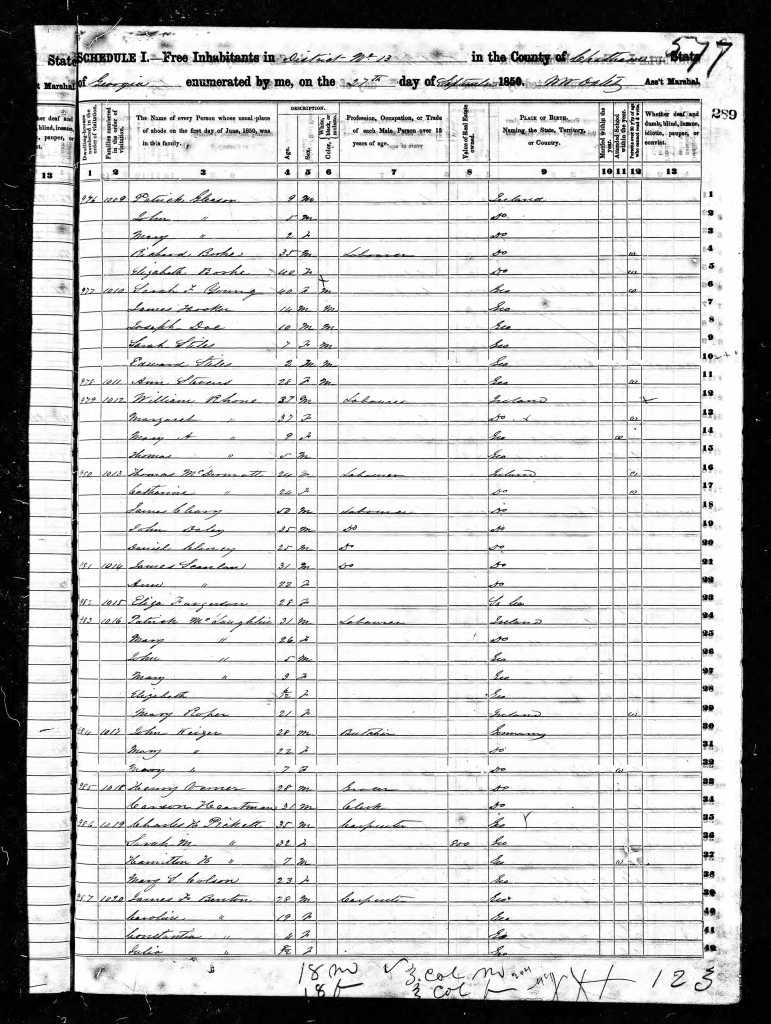 577
SCHEDULE I.—Free Inhabitants in District No 13 in the County of Chatham State
of Georgia enumerated by me, on the 27th day of September 1850. Ass't Marshal.
289
DESCRIPTION.
Dwelling-houses numbered in the order of visitation.
Families numbered in the order of visitation.
The Name of every Person whose usual place of abode on the first day of June, 1850, was in this family.
Age.
Sex.
Color, White, black, or mulatto.
Profession, Occupation, or Trade of each Male Person over 15 years of age.
Value of Real Estate owned.
PLACE OF BIRTH. Naming the State, Territory, or Country.
Married within the year.
Attended School within the year.
Persons over 20 y'rs of age who cannot read & write.
Whether deaf and dumb, blind, insane, idiotic, pauper, or convict.
1 2 3 4 5 6 7 8 9 10 11 12 13
976 1009 Patrick Gleason 9 M Ireland 1
John " 5 M Do 2
Mary " 2 F Do 3
Richard 35 M Laborer Do 4
Elizabeth 40 F Do 5
977 1010 Sarah F Young 40 F M Geo 6
James Hooker 14 M M Geo 7
Joseph Doe 10 M M Geo 8
Sarah Stiles 7 F M Geo 9
Edward Stiles 2 M M Geo 10
978 1011 Ann 28 F M Geo 11
979 1012 William Rhone 37 M Laborer Ireland 12
Margaret 37 F Do 13
Mary A " 9 F Geo 14
Thomas " 5 M Geo 15
980 1013 Thomas McDermott 24 M Laborer Ireland 16
Catherine " 24 F Do 17
James Cleary 50 M Laborer Do 18
John Daley 35 M Do Do 19
Daniel 25 M Do Do 20
981 1014 James Scanlan 31 M Do Do 21
Ann " 22 F Do 22
982 1015 Eliza Furgerson 28 F So Ca 23
983 1016 Patrick McLaughlin 31 M Laborer Ireland 24
Mary " 26 F Do 25
John " 5 M Geo 26
Mary " 3 F Geo 27
Elizabeth F Geo 28
Mary Roper 21 F Ireland 29
984 1017 John Keizer 28 M Butcher Germany 30
Mary " 22 F Do 31
Mary " 7 F Do 32
985 1018 Henry 28 M Grocer Do 33
Carson Heartman 31 M Clerk Do 34
986 1019 Charles H Pickett 35 M Carpenter Geo 35
Sarah M " 32 F 800 Geo 36
Hamilton H " 7 M Geo 37
Mary S Colson 23 F Geo 38
987 1020 James F Benton 28 M Carpenter Geo 39
Caroline " 19 F Geo 40
Constantia " 4 F Geo 41
Julia " F Geo 42
18 m 3 col m
18 f 3 col f
123